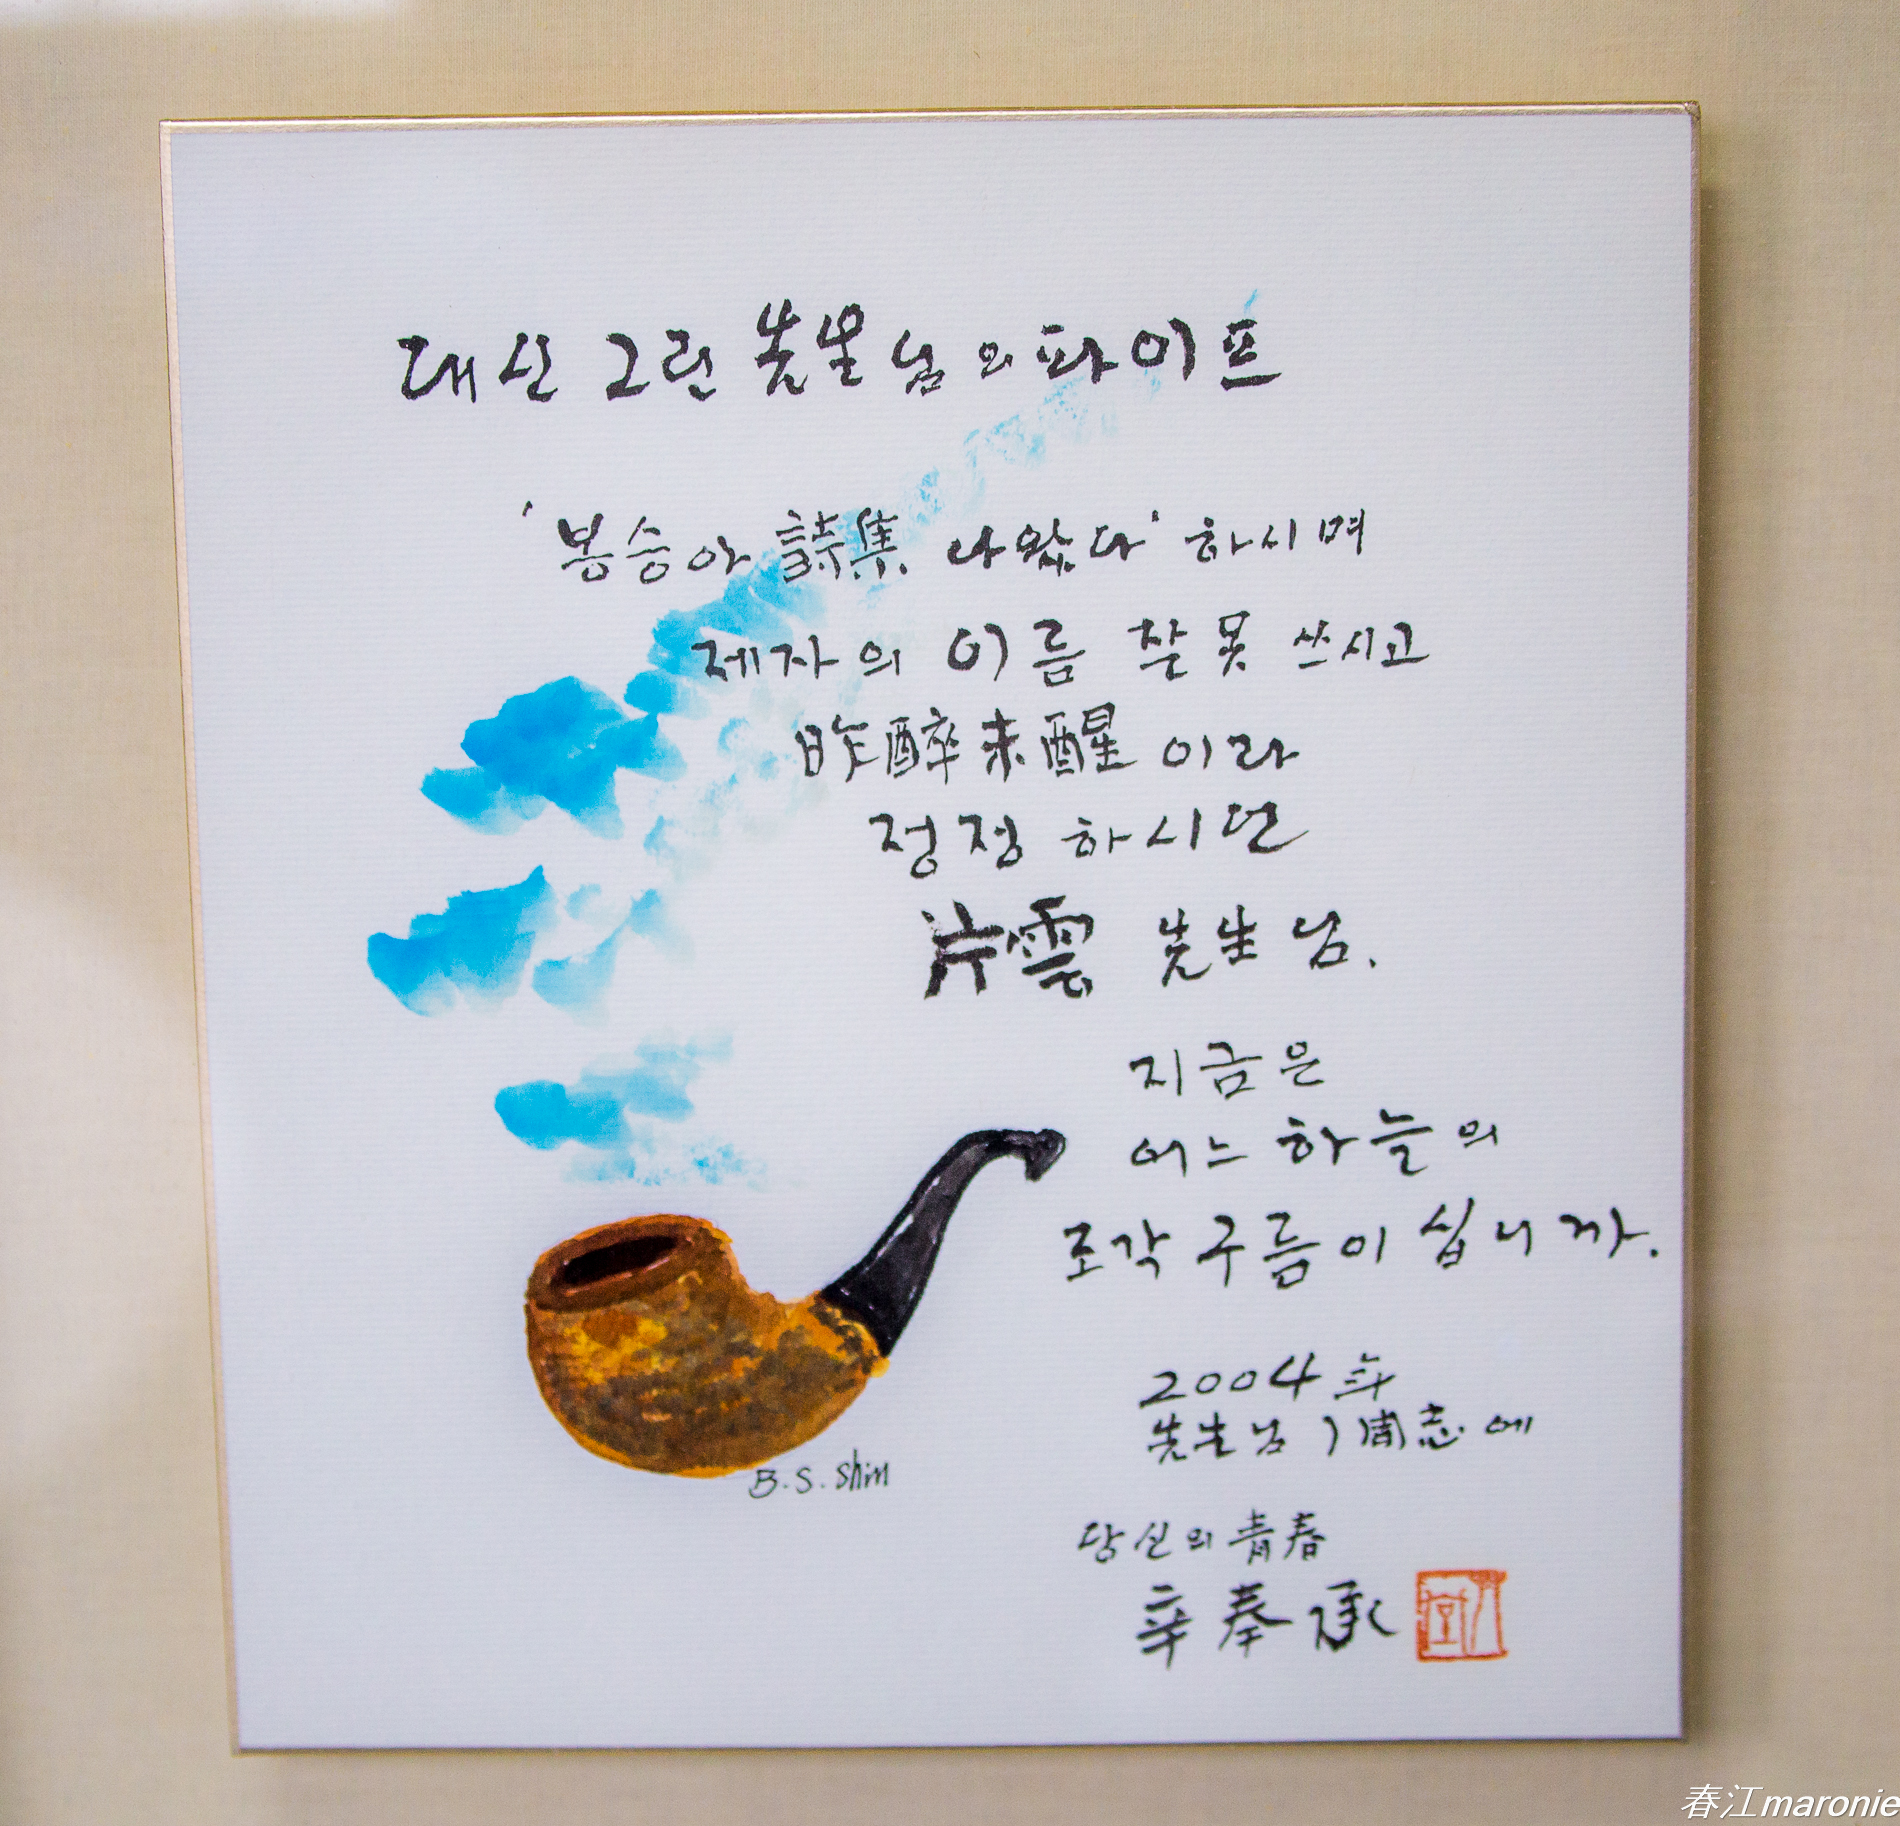 대신 그린 先生님의 파이프
'봉승아 詩集 나왔다' 하시며
제자의 이름 잘못 쓰시고
昨醉未醒이라
정정하시던
片雲 先生님.
지금은
어느 하늘의
조각 구름이십니까.
2004年
先生님 1周忌에
당신의 靑春
辛奉承
B.S. Shin
春江maronie